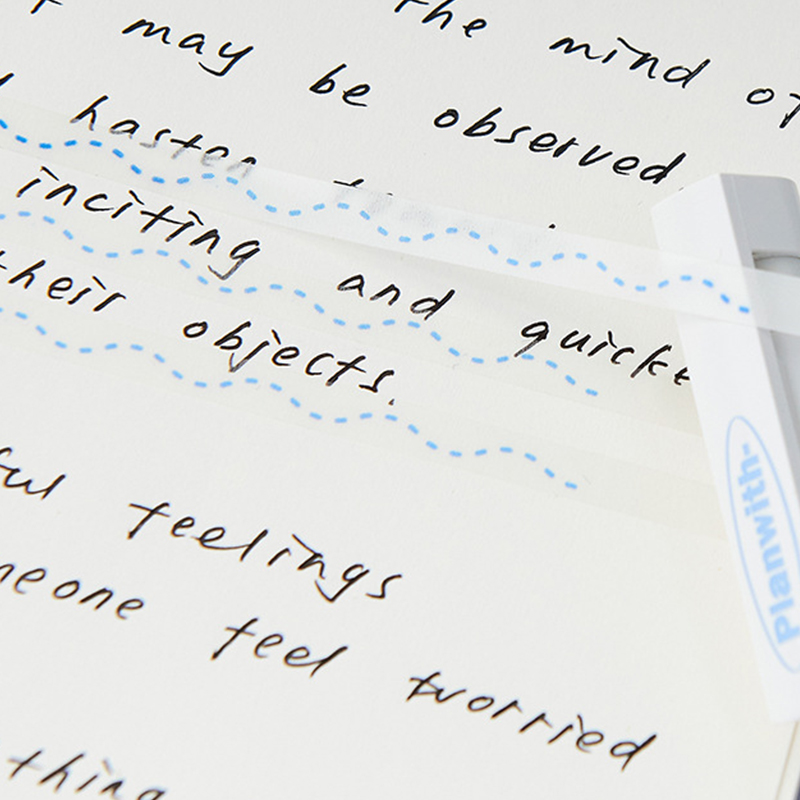 the mind of
may be observed
hasten
inciting and quicke
their objects.
ful feelings
meone feel worried
thing
Planwith-